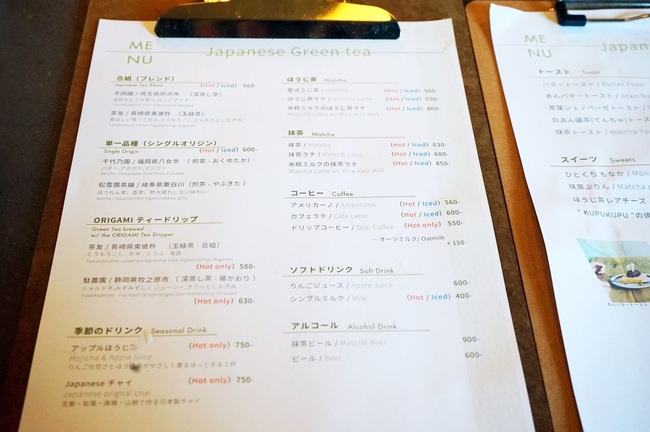 ME
NU
Japanese Green tea
合組（ブレンド）
Japanese Tea Blend
(Hot / Iced) 560-
平岡園 / 埼玉県所沢市 （深蒸し茶）
茶友 / 長崎県東彼杵 （玉緑茶）
単一品種（シングルオリジン）
Single Origin
(Hot / Iced) 600-
千代乃園 / 福岡県八女市 （煎茶・おくゆたか）
バター・アボカド、マンゴー
松雪園茶舗 / 岐阜県東白川 （煎茶・やぶきた）
ORIGAMI ティードリップ
Green Tea brewed
w/ the ORIGAMI Tea Dripper
茶友 / 長崎県東彼杵 （玉緑茶・合組）
(Hot only) 580-
駄農園 / 静岡県牧之原市 （深蒸し茶・藤かおり）
(Hot only) 630-
季節のドリンク Seasonal Drink
アップルほうじ茶 (Hot only) 750-
Hojicha & Apple juice
Japanese チャイ (Hot only) 750-
Japanese orignal chai
ほうじ茶 Hojicha
(Hot / Iced) 580-
ほうじ茶ラテ / Hojicha Latte (Hot / Iced) 550-
米糀ミルクのほうじ茶ラテ (Hot / Iced) 800-
Hojicha Latte w/ Rice Koji Milk
抹茶 Matcha
抹茶 / Matcha (Hot / Iced) 630-
抹茶ラテ / Matcha Latte (Hot / Iced) 680-
米糀ミルクの抹茶ラテ (Hot / Iced) 850-
Matcha Latte w/ Rice Koji Milk
コーヒー Coffee
アメリカーノ / Americano (Hot / Iced) 560-
カフェラテ / Cafe Latte (Hot / Iced) 600-
ドリップコーヒー / Drip Coffee (Hot only) 550-
— オーツミルク / Oatmilk
+ 150-
ソフトドリンク Soft Drink
りんごジュース / Apple Juice 600-
シンプルミルク / Milk (Hot / Iced) 400-
アルコール Alcohol Drink
抹茶ビール / Matcha Beer 900-
ビール / Beer 600-
ME
NU
Japan
トースト Toast
バタートースト / Butter Toast
あんバタートースト / Anko Bu
茶葉ジェノベーゼトースト
白あん碾茶(てんちゃ)トース
抹茶トースト / Matcha To
スイーツ Sweets
ひとくち もなか / Mon
抹茶ぷりん / Matcha
ほうじ茶レアチーズ
" KUPUKUPU "の焼